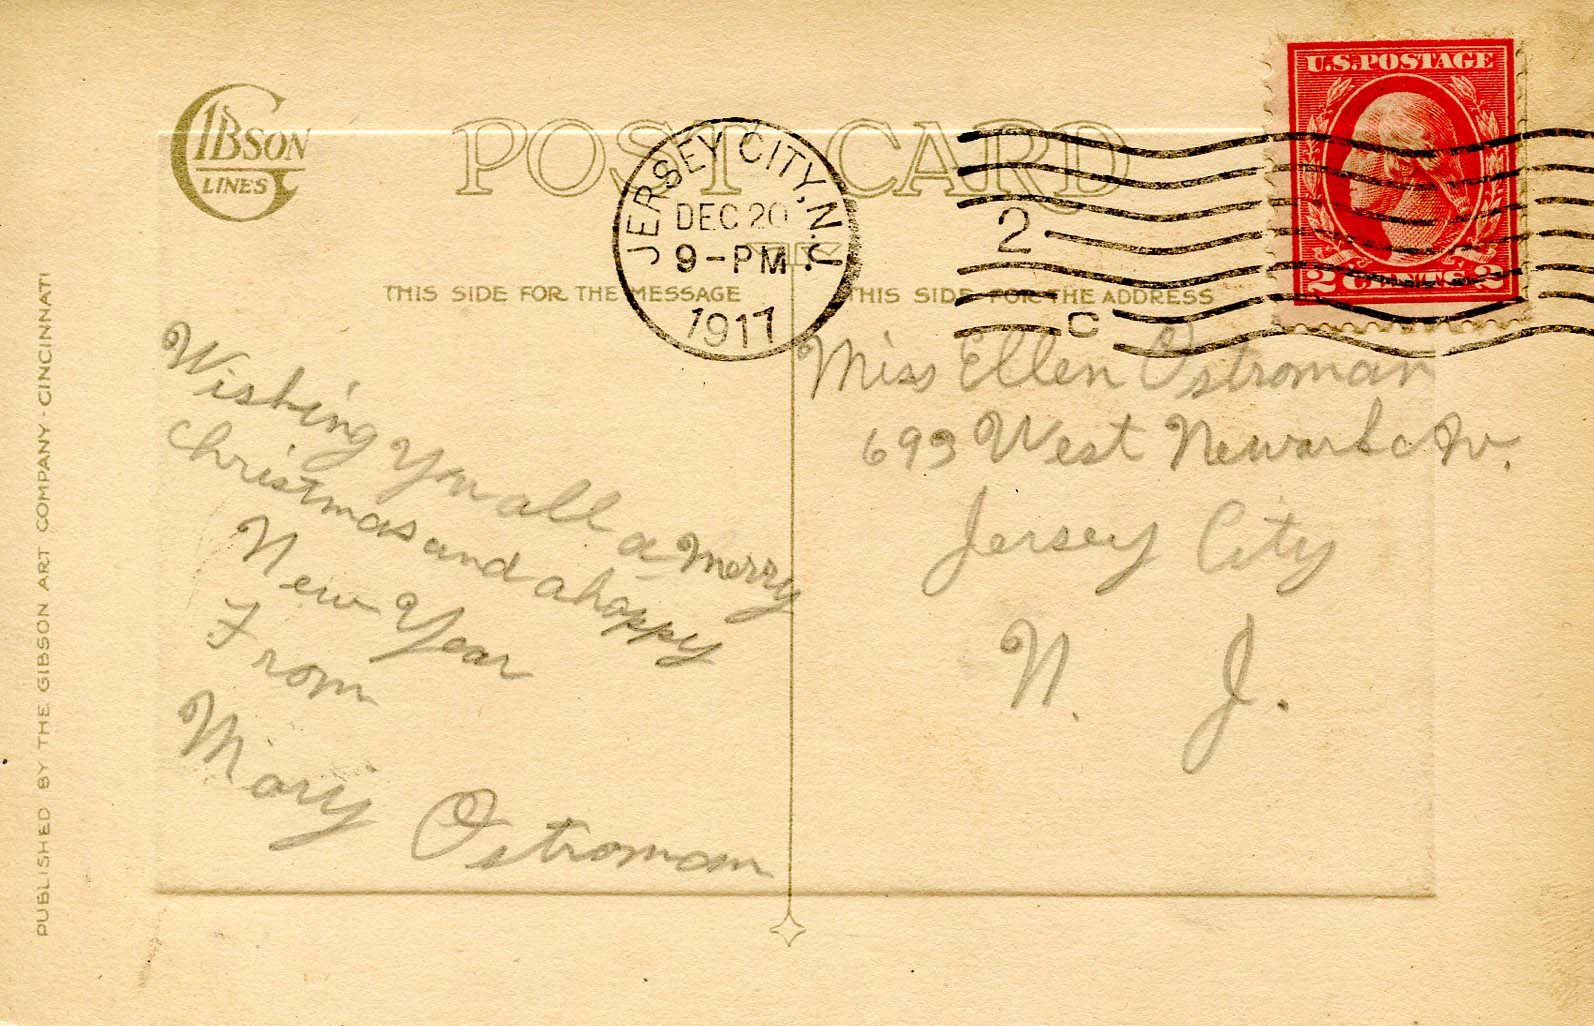 GIBSON
LINES
POST CARD
JERSEY CITY, N.J.
DEC 20
9-PM
1917
2
C
U.S. POSTAGE
2 CENTS 2
THIS SIDE FOR THE MESSAGE
THIS SIDE FOR THE ADDRESS
Wishing you all a merry
Christmas and a happy
New Year
From
Mary Ostroman
Miss Ellen Ostroman
693 West Newark Av.
Jersey City
N. J.
PUBLISHED BY THE GIBSON ART COMPANY - CINCINNATI